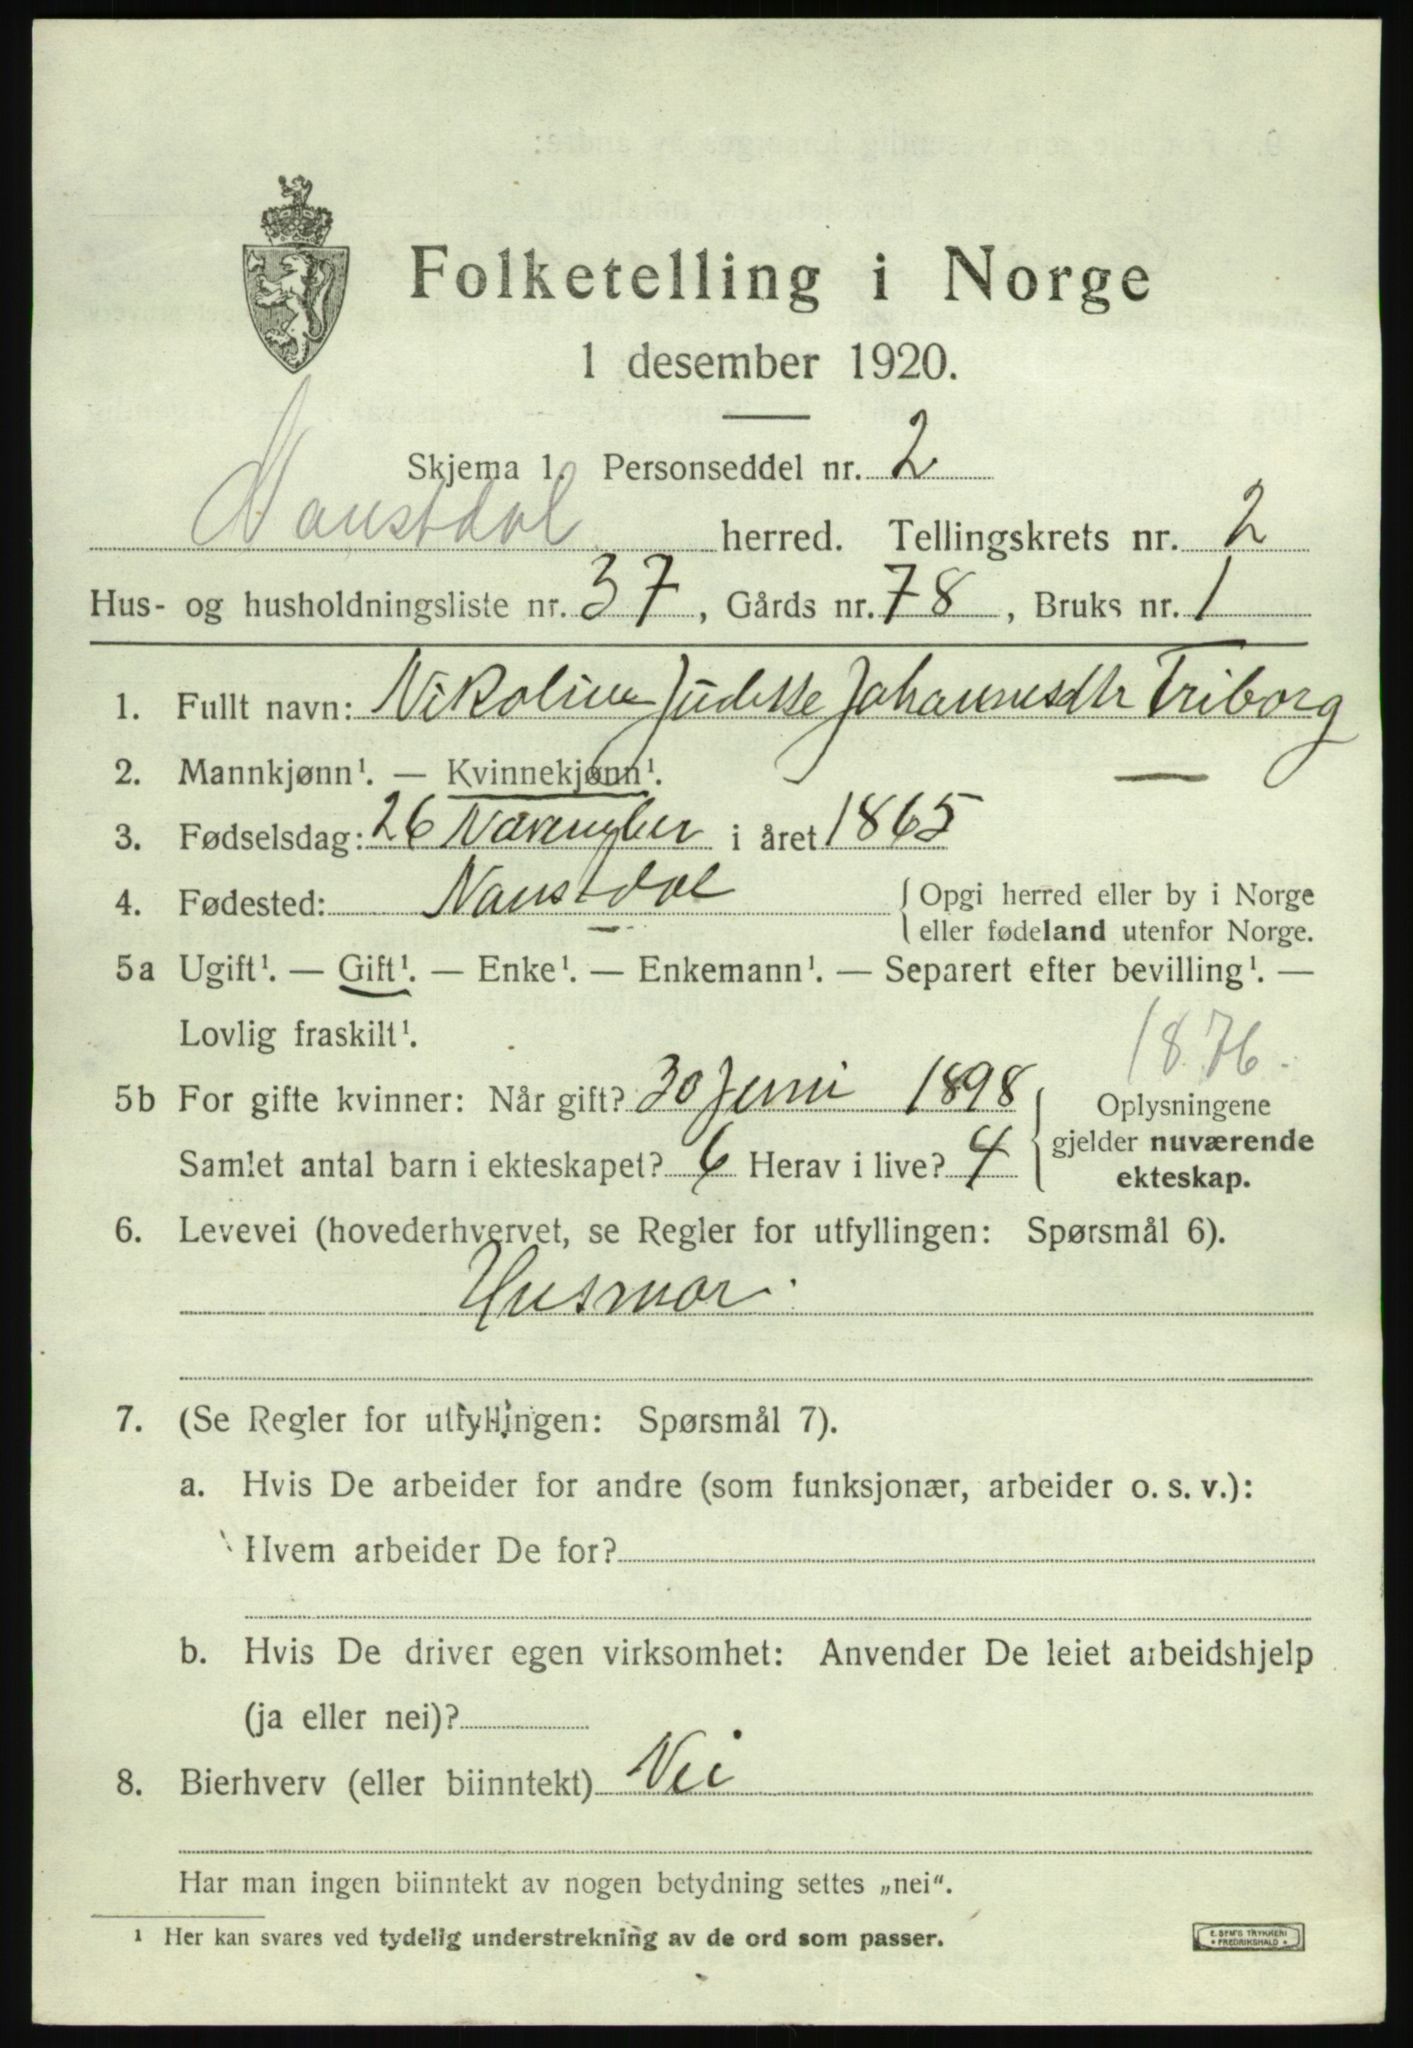 Folketelling i Norge
1 desember 1920.
Skjema 1. Personseddel nr. 2
Naustdal herred. Tellingskrets nr. 2
Hus- og husholdningsliste nr. 37, Gårds nr. 78, Bruks nr. 1
1. Fullt navn: Nikoline Juditte Johannesdtr Triborg
2. Mannkjønn¹. — Kvinnekjønn¹.
3. Fødselsdag: 26 November i året 1865
4. Fødested: Naustdal { Opgi herred eller by i Norge
eller fødeland utenfor Norge.
5a Ugift¹. — Gift¹. — Enke¹. — Enkemann¹. — Separert efter bevilling¹. —
Lovlig fraskilt¹.
1876.
5b For gifte kvinner: Når gift? 30 Juni 1898 { Oplysningene
gjelder nuværende
Samlet antal barn i ekteskapet? 6 Herav i live? 4
ekteskap.
6. Levevei (hovederhvervet, se Regler for utfyllingen: Spørsmål 6).
Husmor
7. (Se Regler for utfyllingen: Spørsmål 7).
a. Hvis De arbeider for andre (som funksjonær, arbeider o. s. v.):
Hvem arbeider De for?
b. Hvis De driver egen virksomhet: Anvender De leiet arbeidshjelp
(ja eller nei)?
8. Bierhverv (eller biinntekt) Nei
Har man ingen biinntekt av nogen betydning settes „nei“.
¹ Her kan svares ved tydelig understrekning av de ord som passer.
E. SEM'S TRYKKERI
* FREDRIKSHALD *